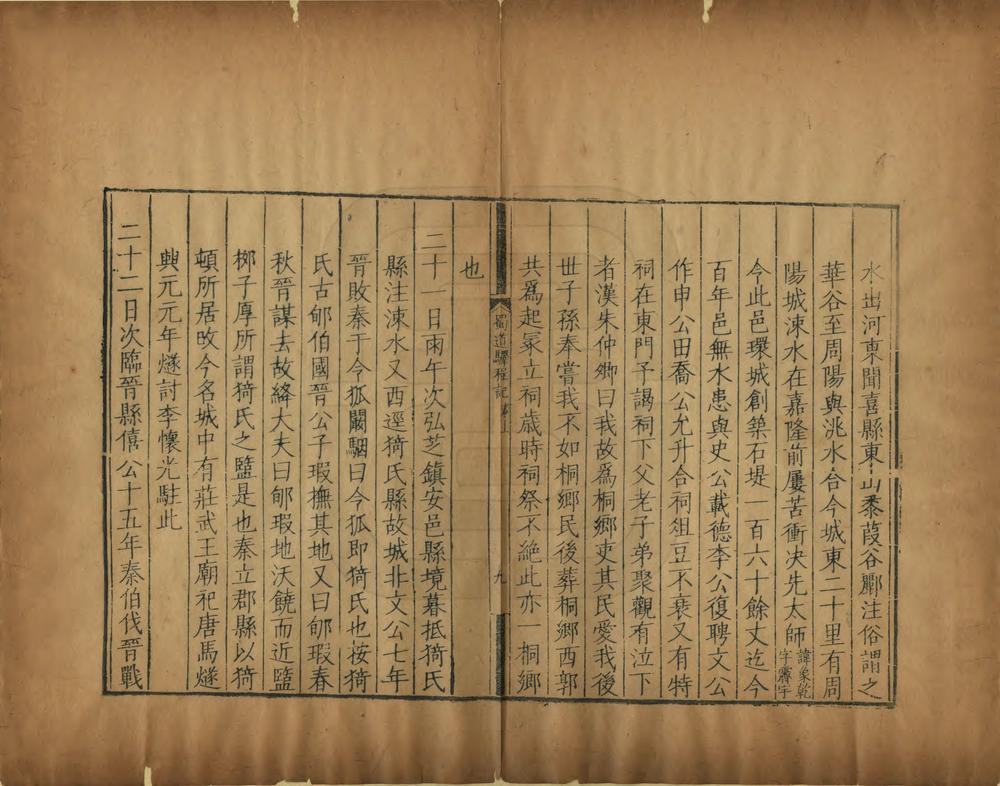 水出河東聞喜縣東山黍葭谷酈注俗謂之
華谷至周陽與洮水合今城東二十里有周
陽城涑水在嘉隆前屢苦衝决先太師諱象乾字霽宇
今此邑環城創築石堤一百六十餘丈迄今
百年邑無水患與史公載德李公復聘文公
作申公田喬公允升合祠俎豆不衰又有特
祠在東門予謁祠下父老子弟聚觀有泣下
者漢朱仲卿曰我故爲桐鄉吏其民愛我後
世子孫奉嘗我不如桐鄉民後葬桐鄉西郭
共爲起冢立祠歳時祠祭不絶此亦一桐鄉
也
蜀道驛程記 卷上 九
二十一日雨午次弘芝鎮安邑縣境暮抵猗氏
縣注涑水又西逕猗氏縣故城北文公七年
晉敗秦于令狐闞駰曰令狐即猗氏也按猗
氏古郇伯國晉公子瑕撫其地又曰郇瑕春
秋晉謀去故絳大夫曰郇瑕地沃饒而近盬
栁子厚所謂猗氏之盬是也秦立郡縣以猗
頓所居故今名城中有莊武王廟祀唐馬燧
興元元年燧討李懷光駐此
二十二日次臨晉縣僖公十五年秦伯伐晉戰